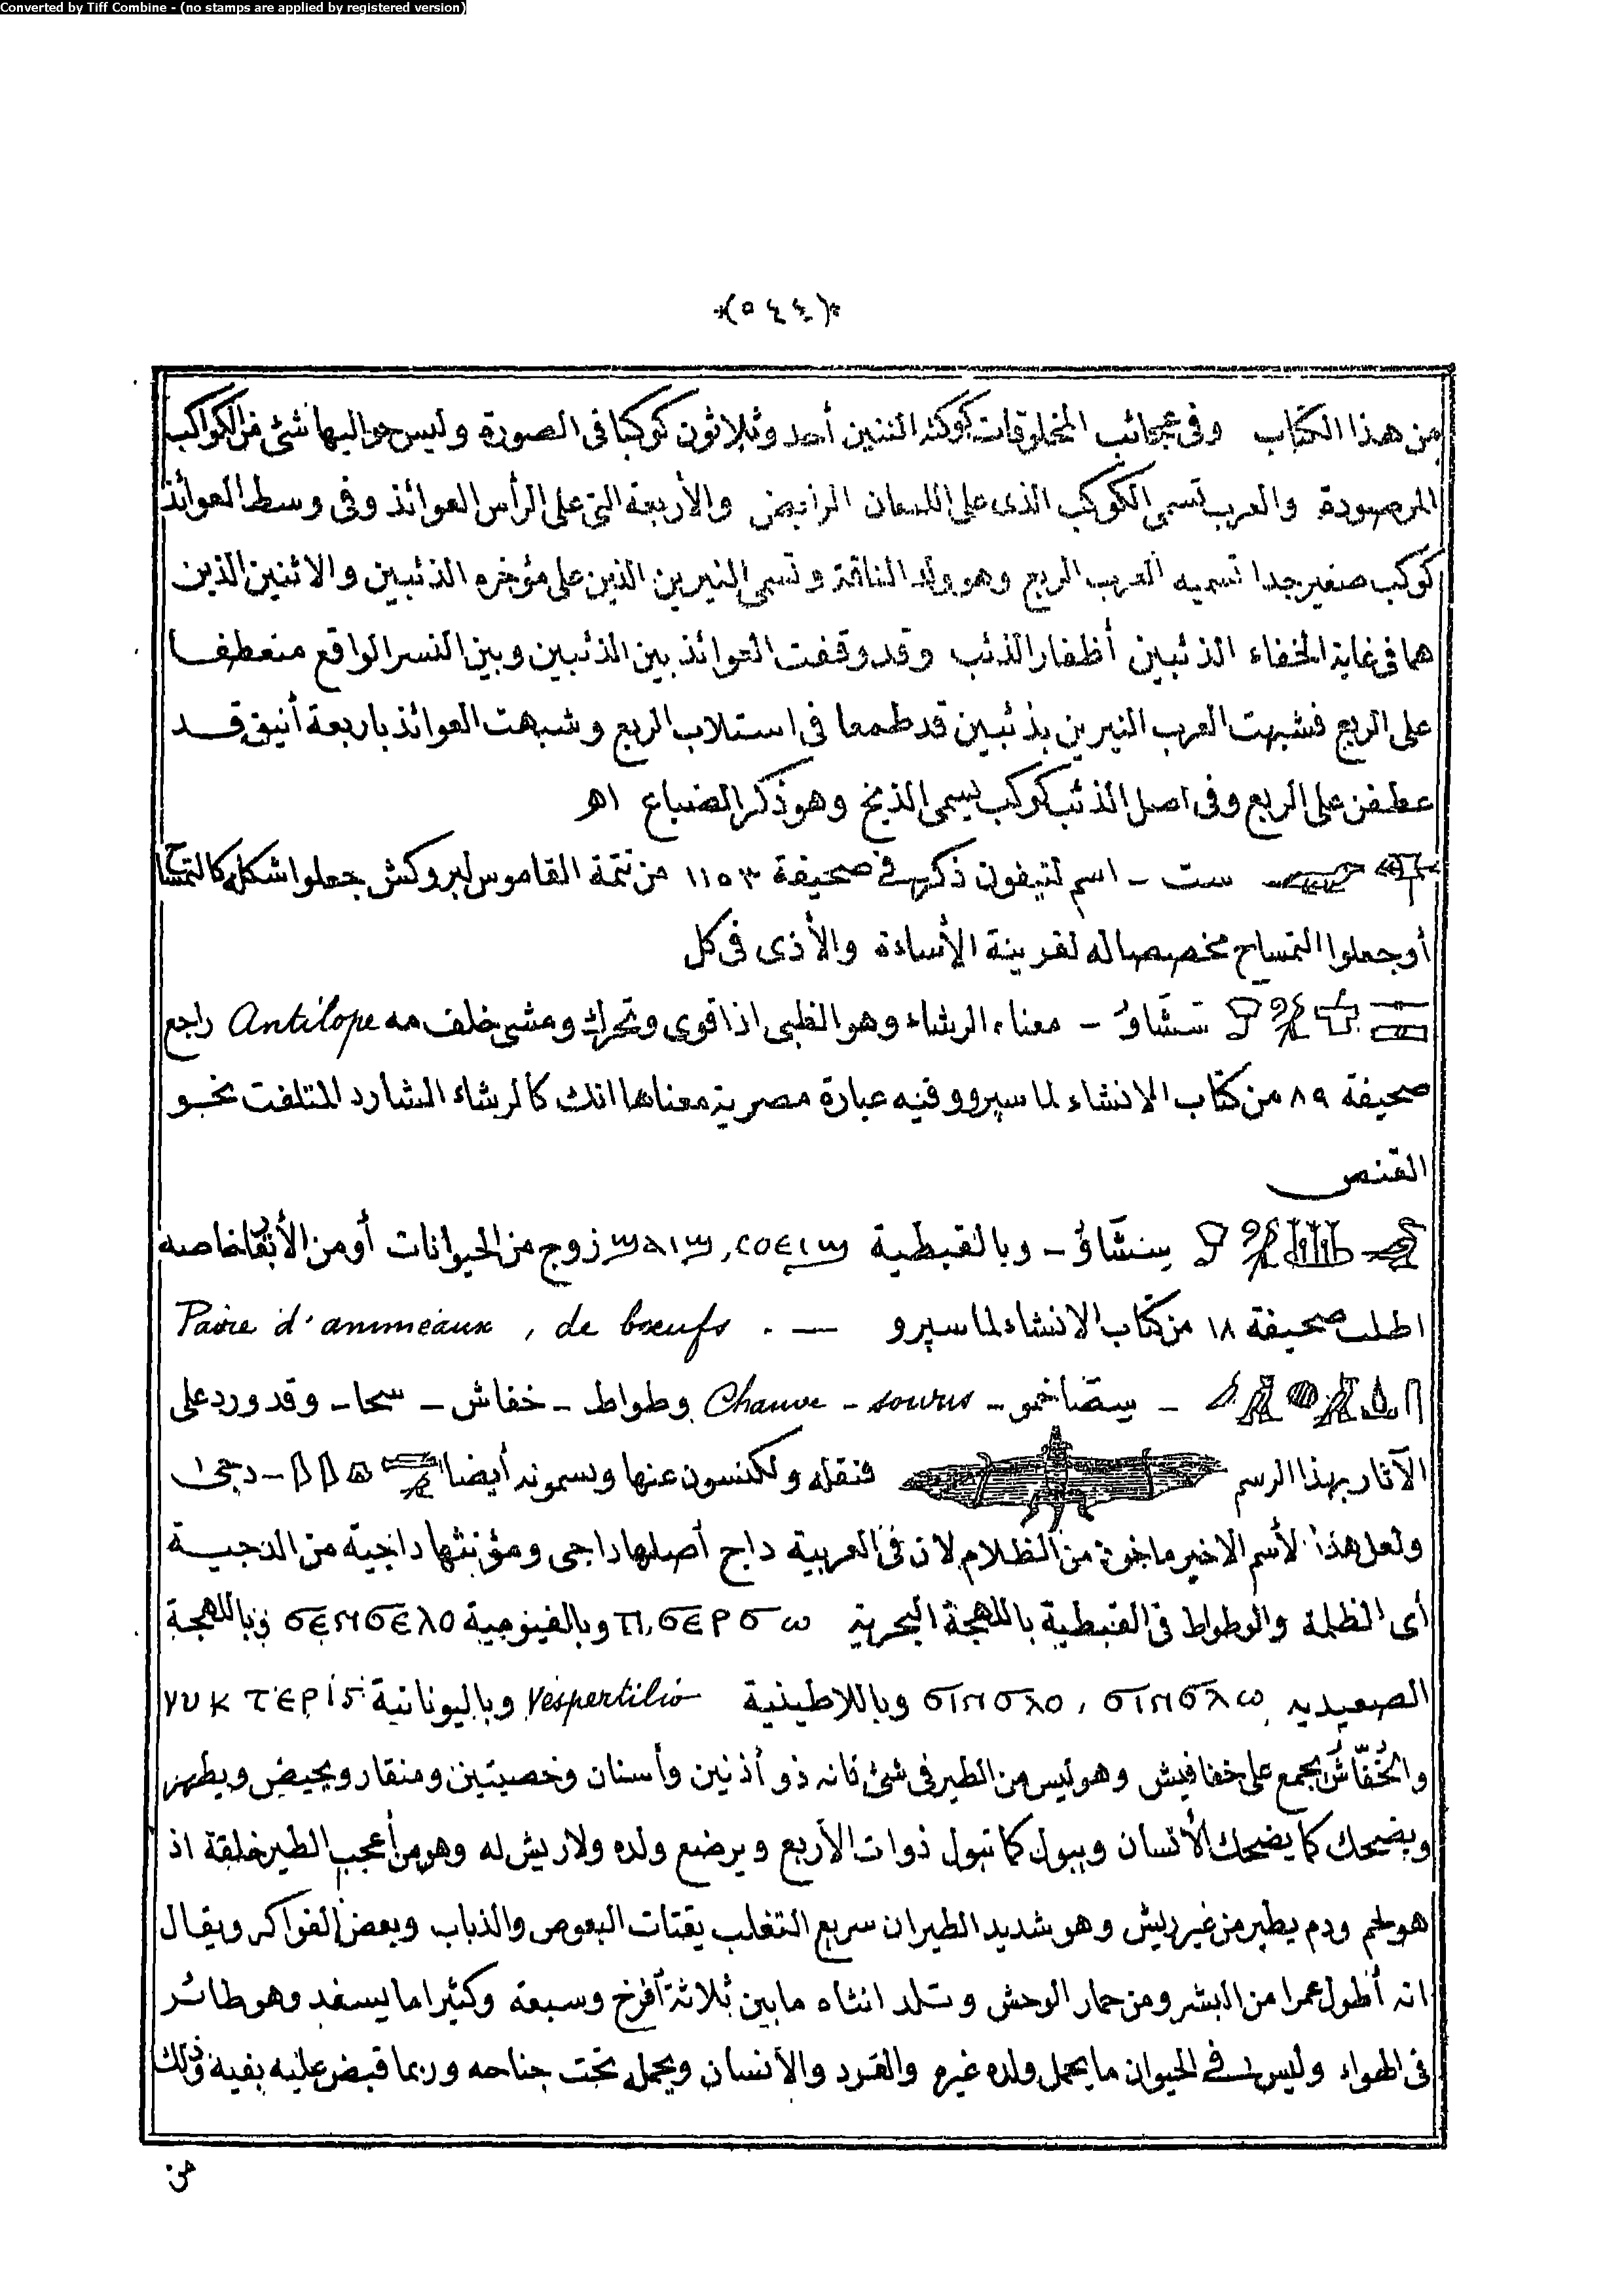 Converted by Tiff Combine - (no stamps are applied by registered version)
*(٥٤٤)*
من هذا الكتاب وفى عجائب المخلوقات كوكبة التنين أحد وثلاثون كوكبا فى الصورة وليس حواليها شئ من الكواكب
المرصودة والعرب تسمى الكوكب الذى على اللسان الرابض والأربعة التى على الرأس العوائذ وفى وسط العوائذ
كوكب صغير جدا تسميه العرب الربع وهو ولد الناقة وتسمى النيرين الذين على مؤخره الذئبين والاثنين الذين
هما فى غاية الخفاء الذئبين أظفار الذئب وقد وقفت العوائذ بين الذئبين وبين النسر الواقع منعطفا
على الربع فشبهت العرب النيرين بذئبين قد طمعا فى استلاب الربع وشبهت العوائذ باربعة أنيق قد
عطفن على الربع وفى اصل الذئب كوكب يسمى الذيخ وهو ذكر الضباع اهـ
ست - اسم لتيفون ذكر فى صحيفة ١١٥٣ من تتمة القاموس لبروكش جعلوا شكله كالتمساح
أو جعلوا التمساح مخصصا له لقرينة الأساءة والأذى فى كل
تشَاوُ - معناه الرشاء وهو الظبى اذا قوى وتحرك ومشى خلف امه Antilope راجع
صحيفة ٨٩ من كتاب الانشاء لماسپرو وفيه عبارة مصرية معناها انك كالرشاء الشارد المتلفت نحو
القنص
سِنشَاوُ - وبالقبطية ϣⲁⲓϣ, ⲥⲟⲉⲓϣ زوج من الحيوانات أو من الأبقار خاصه
اطلب صحيفة ١٨ من كتاب الانشاء لماسپرو — . Paire d'animeaux, de bœufs
- سِتضاخمو - Chauve - souris وطواط - خفاش - سحا - وقد ورد على
الآثار بهذا الرسم فنقله ولكنسون عنها ويسمونه أيضا - دجى
ولعل هذا الأسم الاخير ماخوذ من الظلام لان فى العربية داج أصلها داجى ومؤنثها داجية من الدجية
أى الظلمة والوطواط فى القبطية باللهجة البحرية ⲡⲓϭⲉⲣϭⲱ وبالفيومية ϭⲉⲛϭⲉⲗⲟ وباللهجة
الصعيديه ϭⲓⲛϭⲗⲟ, ϭⲓⲛϭⲗⲱ وباللاطينية Vespertilio وباليونانية νυκτερίς
والخُفّاشُ يجمع على خفافيش وهو ليس من الطير فى شئ فانه ذو أذنين وأسنان وخصيتين ومنقار ويحيض ويطهر
ويضحك كما يضحك الأنسان ويبول كما تبول ذوات الأربع ويرضع ولده ولا ريش له وهو من أعجب الطير خلقة اذ
هو لحم ودم يطير من غير ريش وهو شديد الطيران سريع التقلب يقتات البعوض والذباب وبعض الفواكه ويقال
انه أطول عمرا من البشر ومن حمار الوحش وتلد انثاه ما بين ثلاثة أفرخ وسبعة وكثيرا ما يسفد وهو طائر
فى الهواء وليس فى الحيوان ما يحمل ولده غيره والقرد والأنسان ويحمله تحت جناحه وربما قبض عليه بفيه وذلك
من